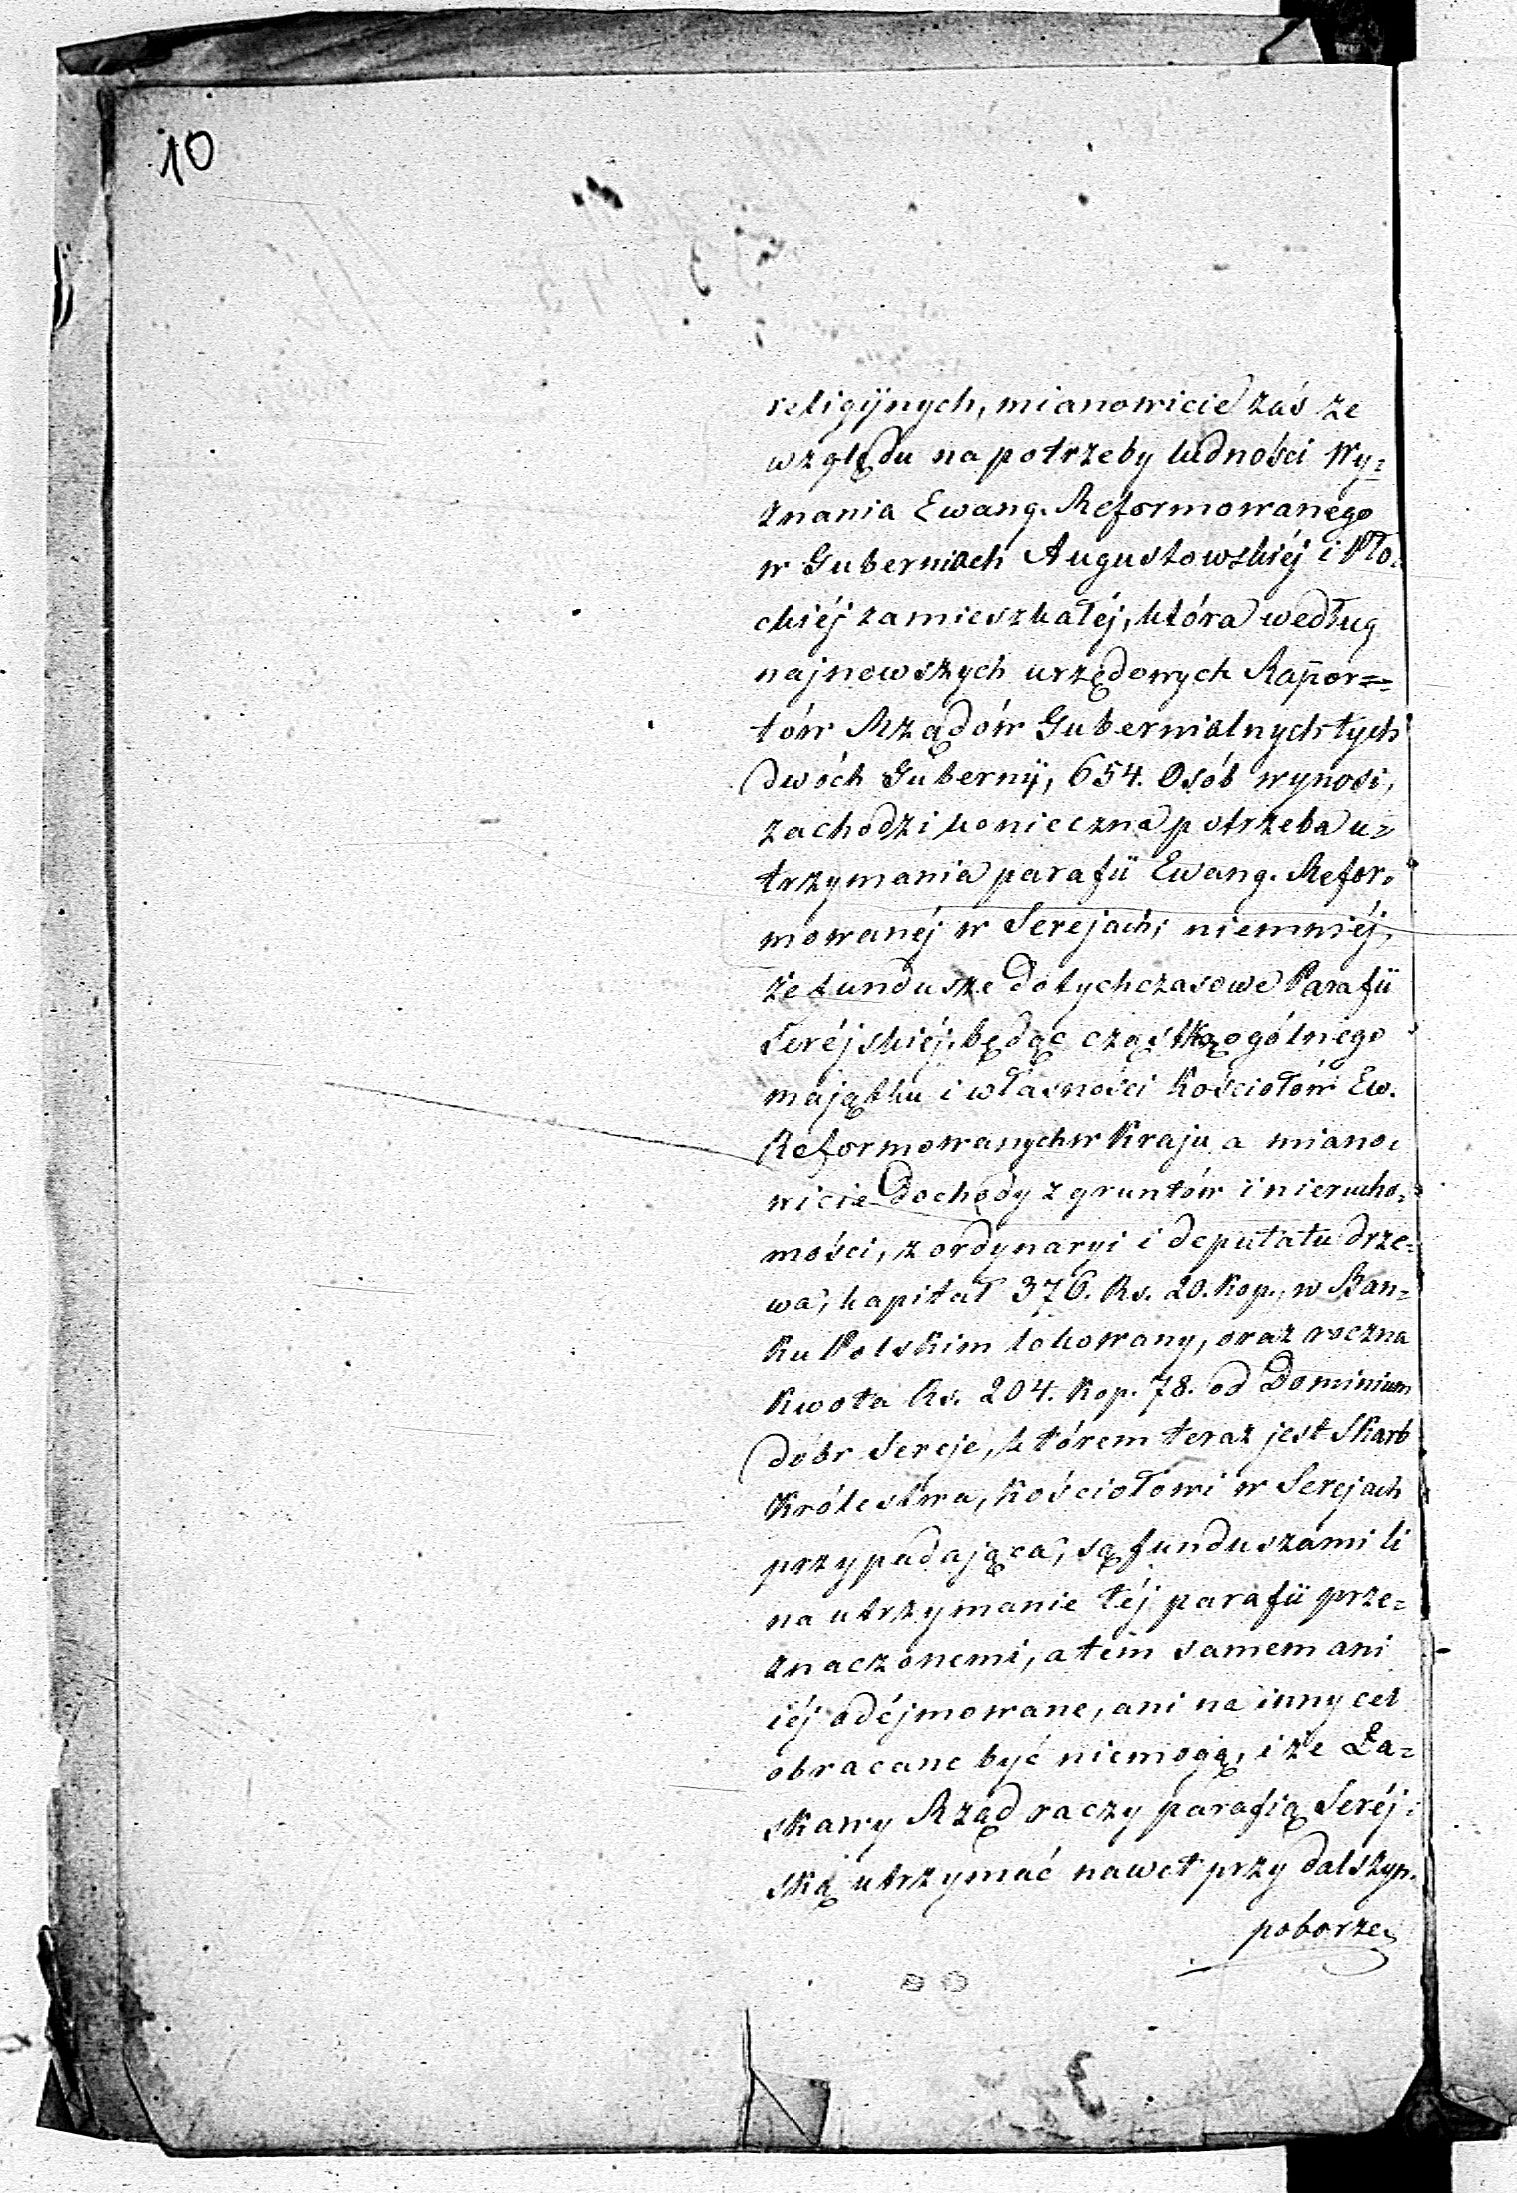 10
religijnych, mianowicie zaś ze
względu na potrzeby ludności Wy=
znania Ewang. Reformowanego
w Guberniach Augustowskiéj i Pło=
ckiéj zamieszkałéj, która według
najnowszych urzędowych Rappor=
tów Rządów Gubernialnych tych
dwóch Gubernij, 654. Osób wynosi,
zachodzi konieczna potrzeba u=
trzymania parafii Ewang. Refor=
mowanéj w Serejach; niemniéj,
że fundusze dotychczasowe Parafii
Seréjskiéj, będąc cząstką ogólnego
majątku i własności Kościołów Ew.
Reformowanych w Kraju a miano=
wicie dochody z gruntów i nierucho=
mości, z ordynaryi i deputatu drze=
wa, kapitał 376. Rs. 20. Kop., w Ban=
ku Polskim lokowany, oraz roczna
Kwota Rs. 204. Kop. 78. od Dominium
dobr Sereje, którem teraz jest Skarb
Królestwa, Kościołowi w Serejach
przypadająca, są funduszami li
na utrzymanie téj parafii prze=
znaczonemi, a tém samem ani
iéj odéjmowane, ani na inny cel
obracane być niemogą, i że Ła=
skawy Rząd raczy parafią Seréj=
ską utrzymać nawet przy dalszym
poborze